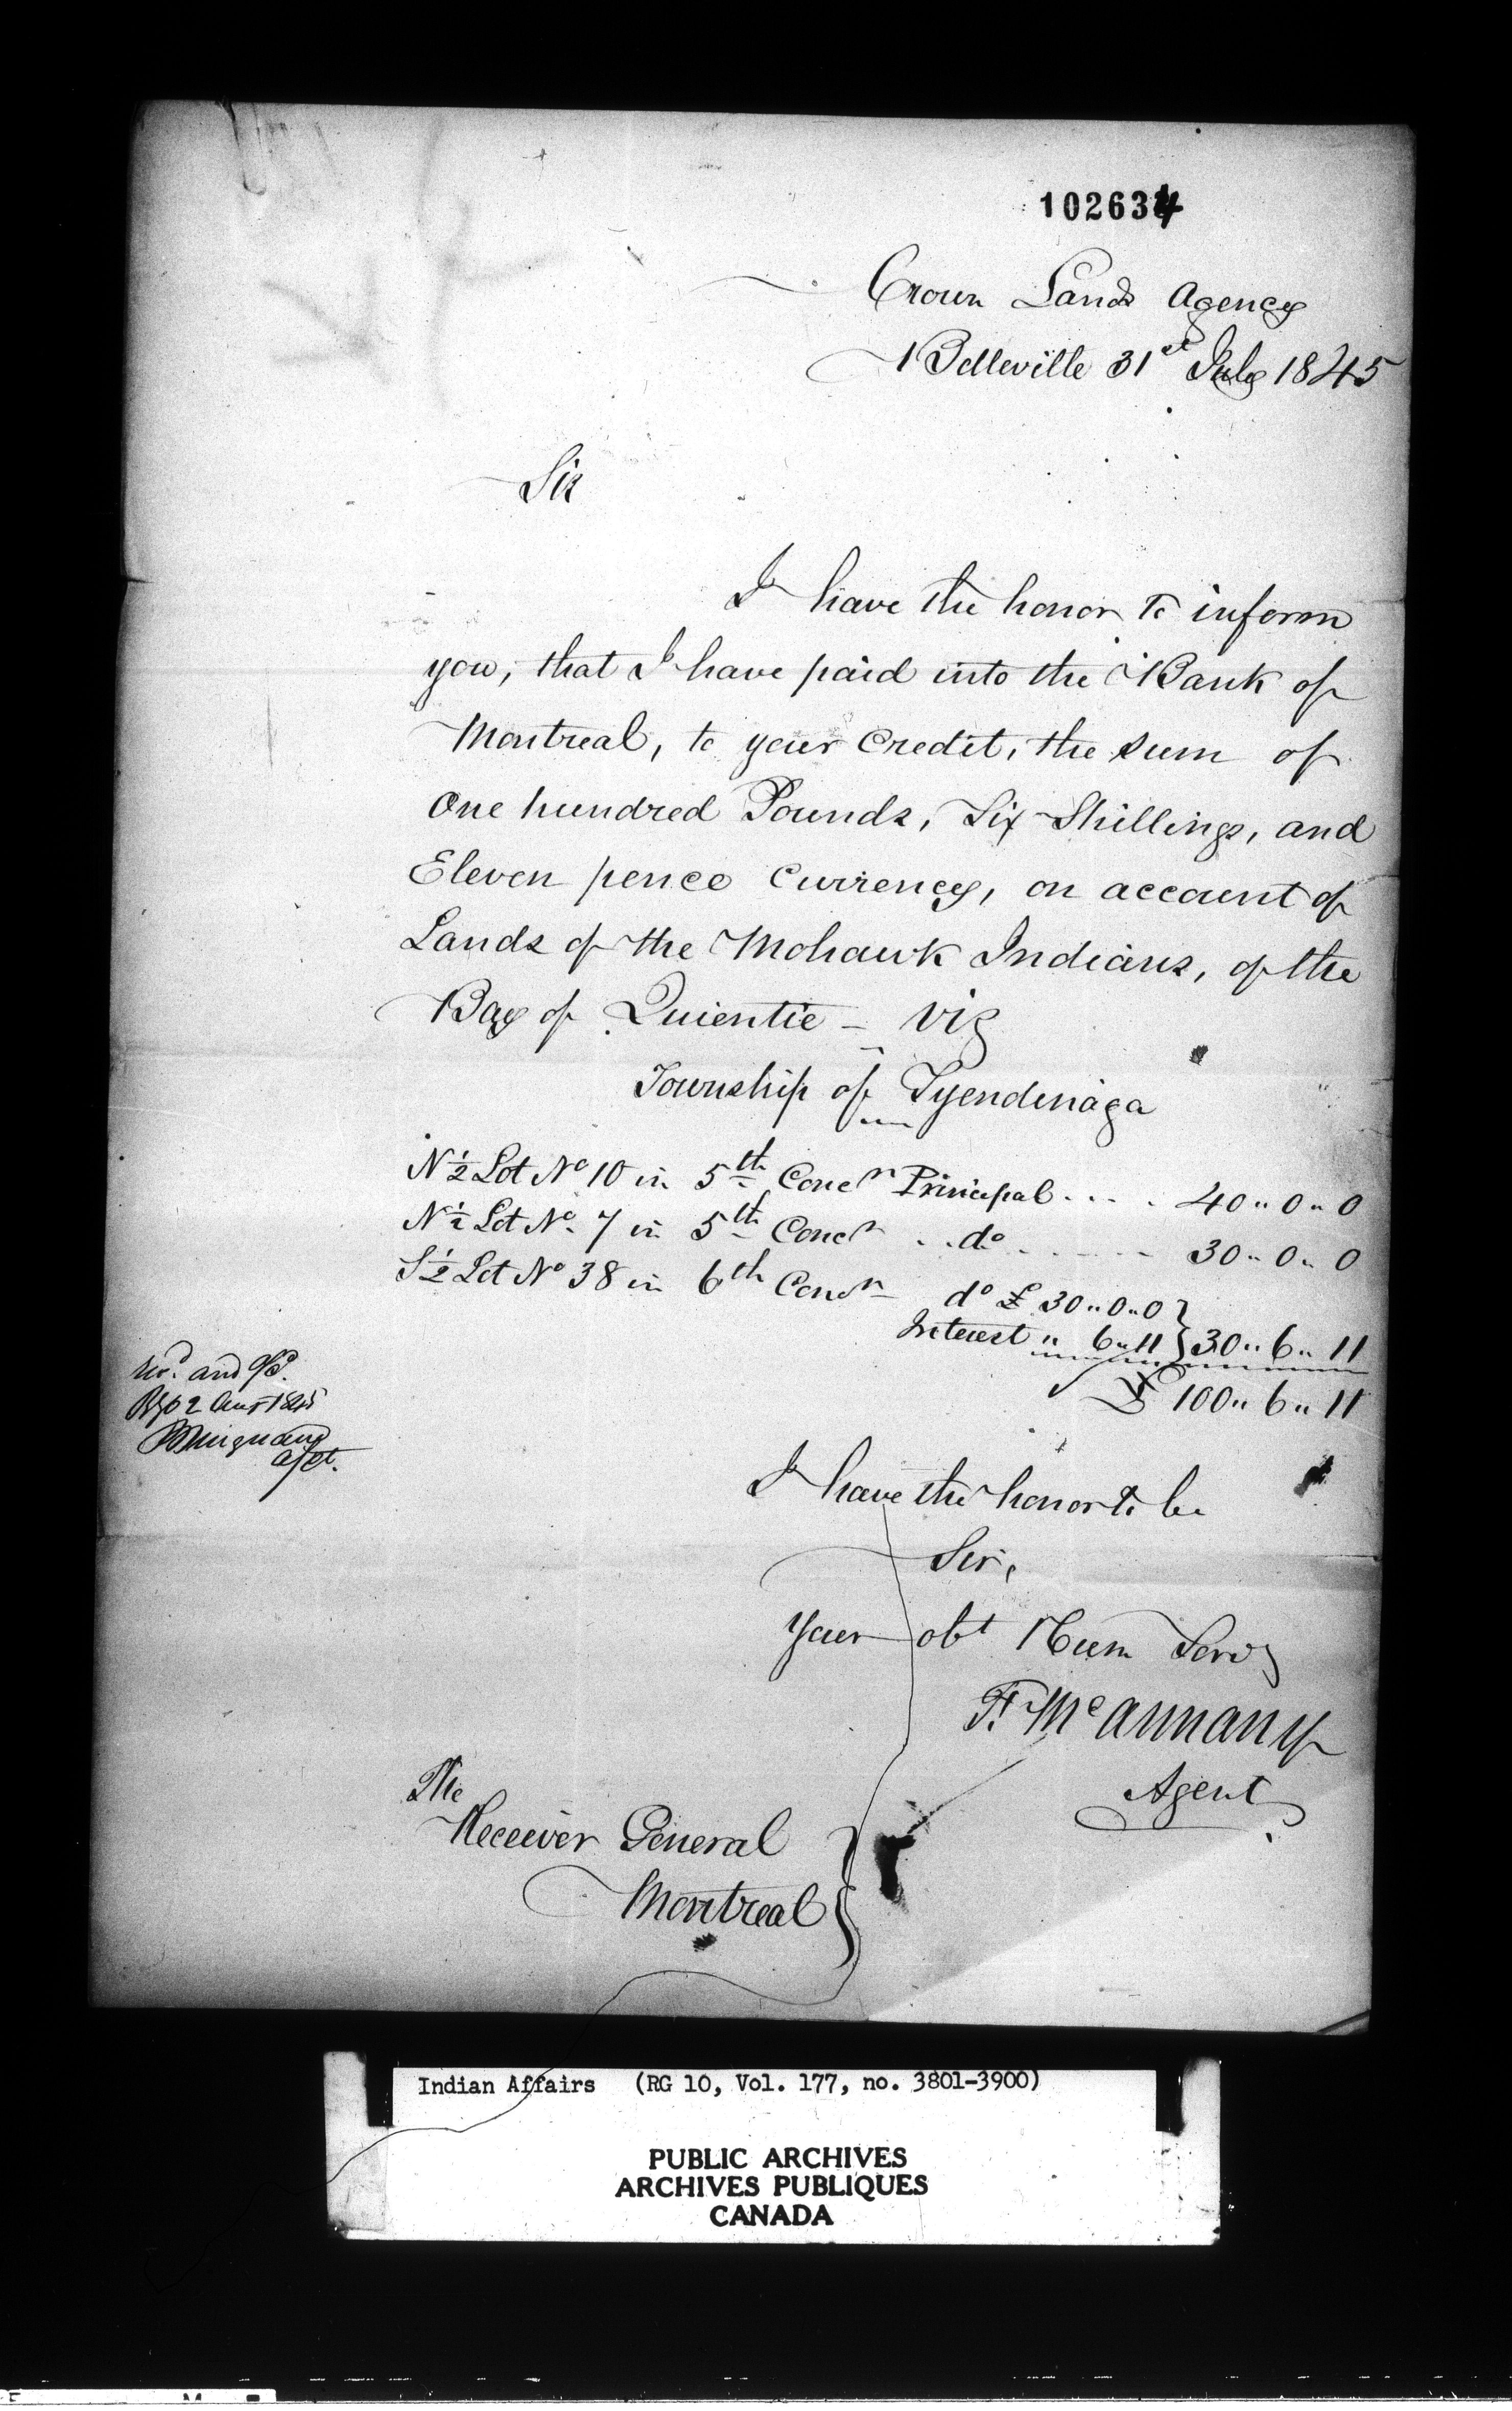 102634
Crown Lands Agency
Belleville 31st July 1845
Sir
I have the honor to inform
you, that I have paid into the Bank of
Montreal, to your Credit, the sum of
One hundred Pounds, Six Shillings, and
Eleven pence Currency, on account of
Lands of the Mohawk Indians, of the
Bay of Quientie - viz
Township of Tyendinaga
N½ Lot No 10 in 5th Concn Principal .... 40 " 0 " 0
N½ Lot No. 7 in 5th Concn .. do ...... 30 " 0 " 0
S½ Lot No 38 in 6th Concn do £ 30 " 0 " 0 }
Interest " 6 " 11 } 30 " 6 " 11
£ 100 " 6 " 11
and
2 Augt 1845
I have the honor to be
Sir,
Your obt Hum Serv
F. McAnnany
Agent
The
Receiver General
Montreal }
Indian Affairs (RG 10, Vol. 177, no. 3801-3900)
PUBLIC ARCHIVES
ARCHIVES PUBLIQUES
CANADA